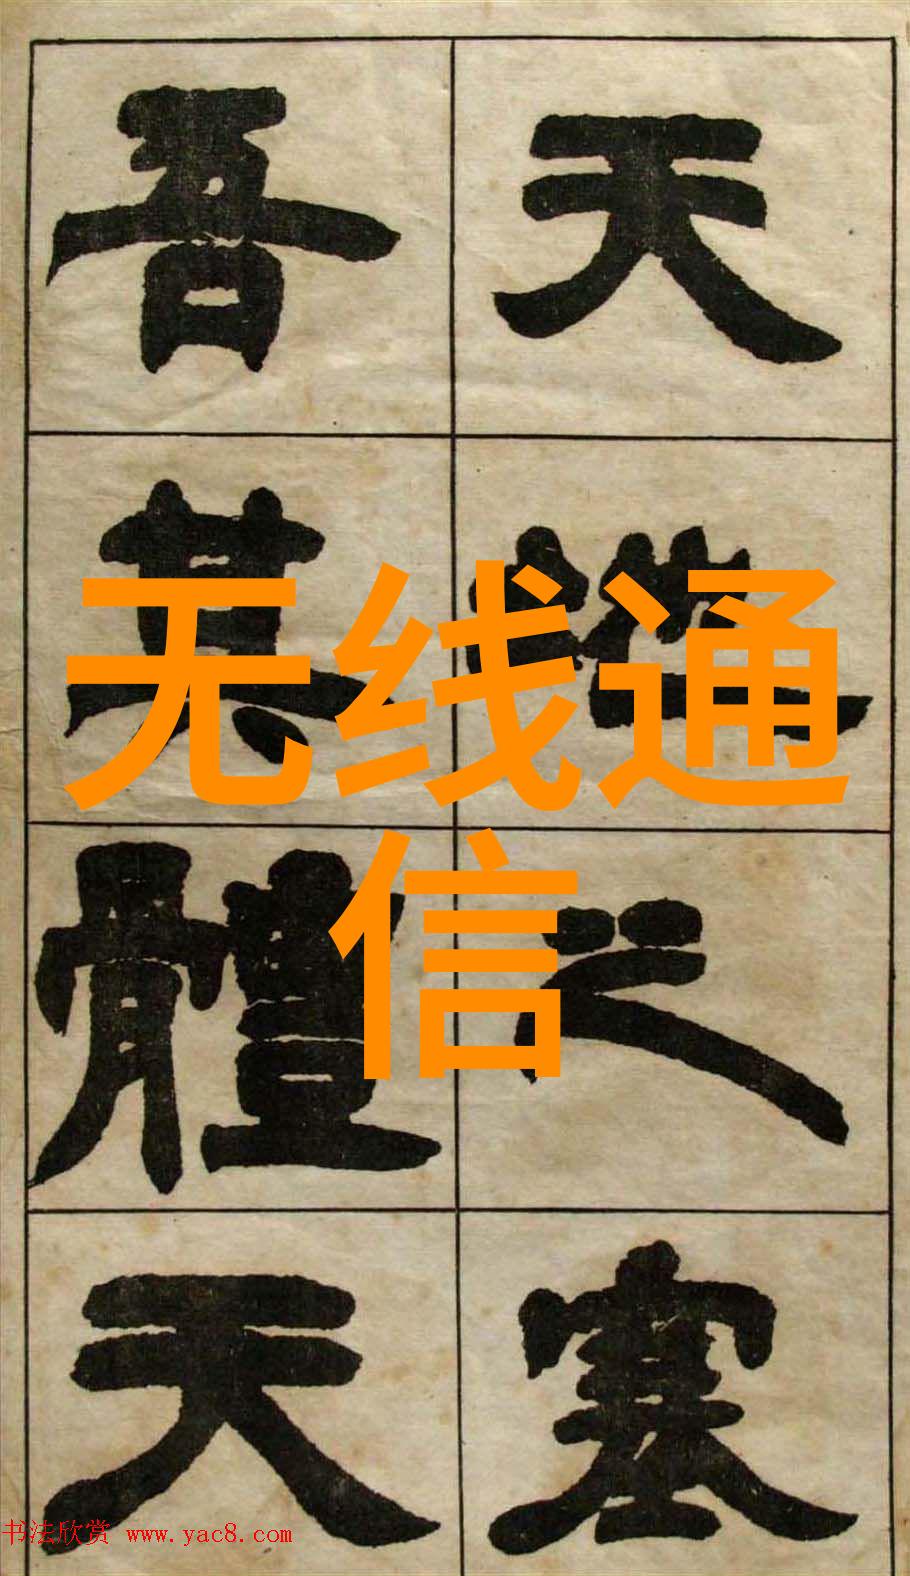 天地之塞
吾其體天
无线通
信
书法欣赏 www.yac8.com